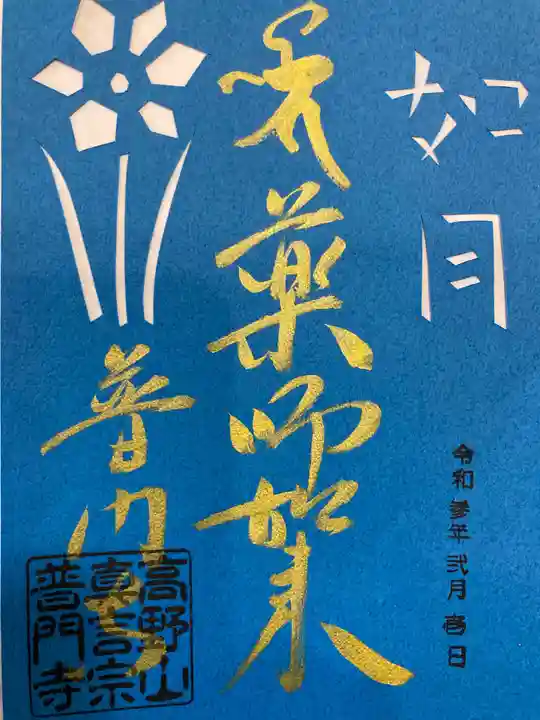 如月
令和参年弐月壱日
薬師如来
普門寺
高野山
真言宗
普門寺